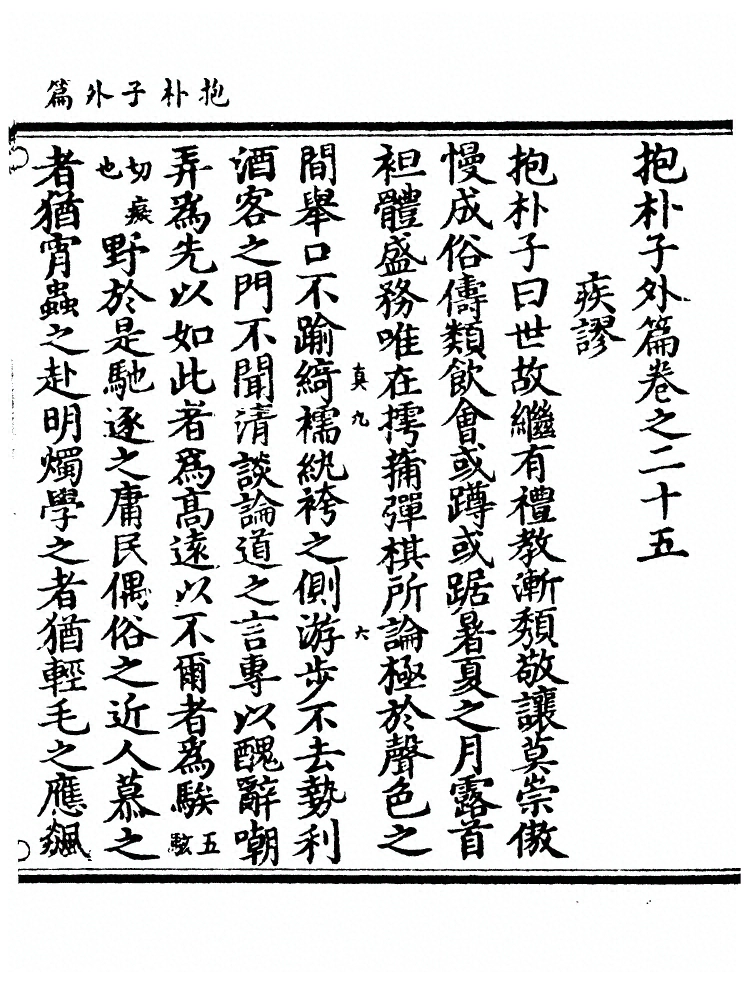 抱朴子外篇
抱朴子外篇卷之二十五
疾謬
抱朴子曰世故繼有禮教漸頹敬讓莫崇傲
慢成俗儔類飲會或蹲或踞暑夏之月露首
袒體盛務唯在摴蒱彈棋所論極於聲色之
間舉口不踰綺襦紈袴之側游步不去勢利
酒客之門不聞清談論道之言專以醜辭嘲
弄爲先以如此者爲高遠以不爾者爲騃五駭
切癡也野於是馳逐之庸民偶俗之近人慕之
者猶宵蟲之赴明燭學之者猶輕毛之應飆
真九
六